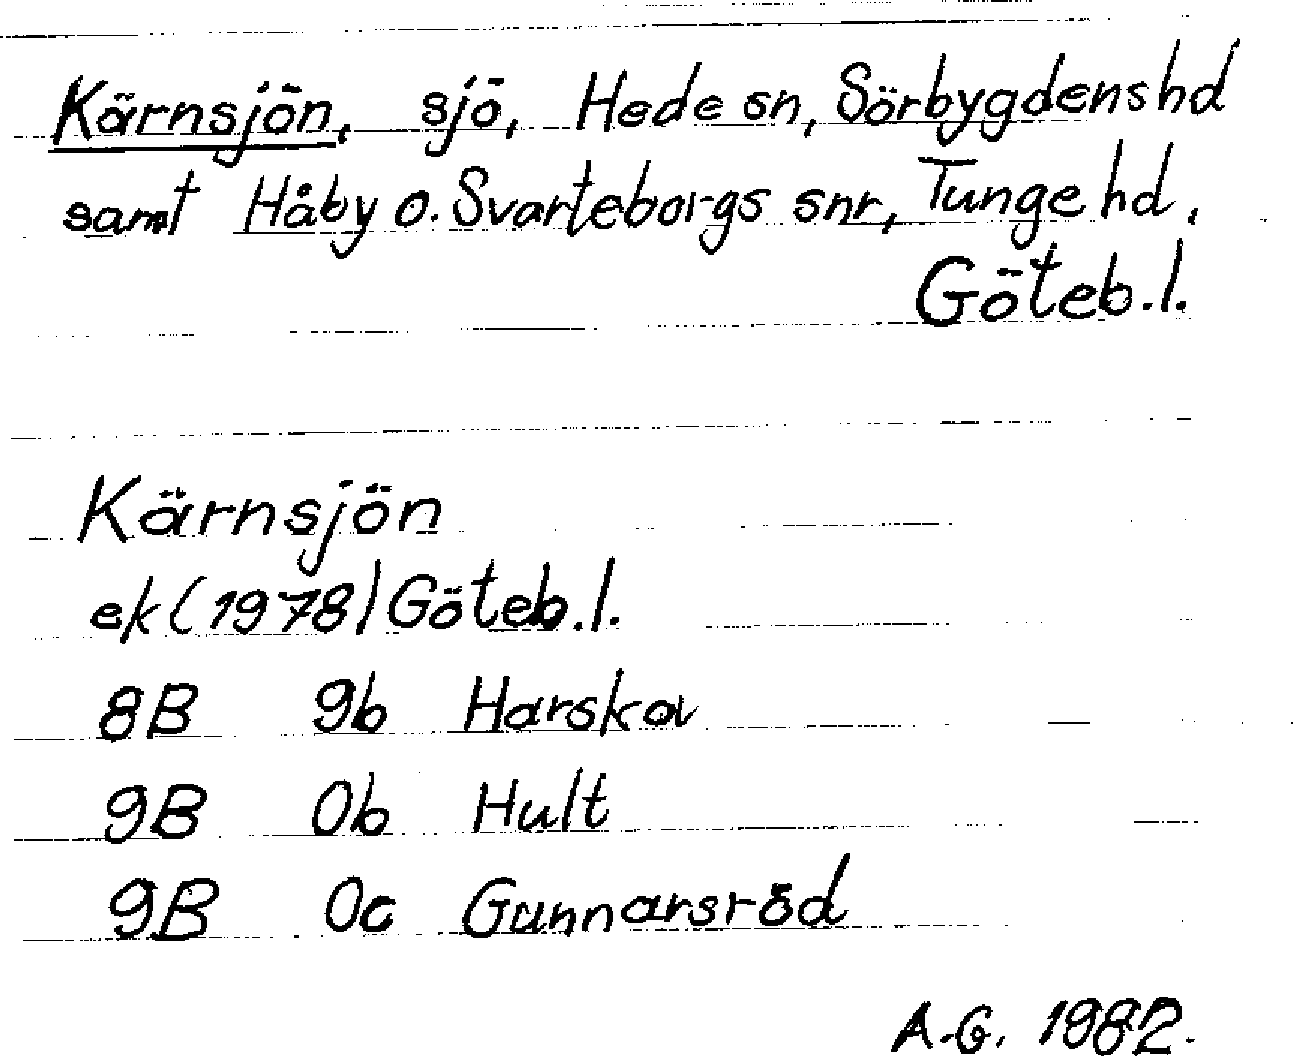 Kärnsjön, sjö, Hede sn, Sörbygdens hd
samt Håby o. Svarteborgs snr, Tunge hd,
Göteb.l.
Kärnsjön
ek (1978) Göteb.l.
8B 9b Harskov
9B 0b Hult
9B 0c Gunnarsröd
A.G. 1982.